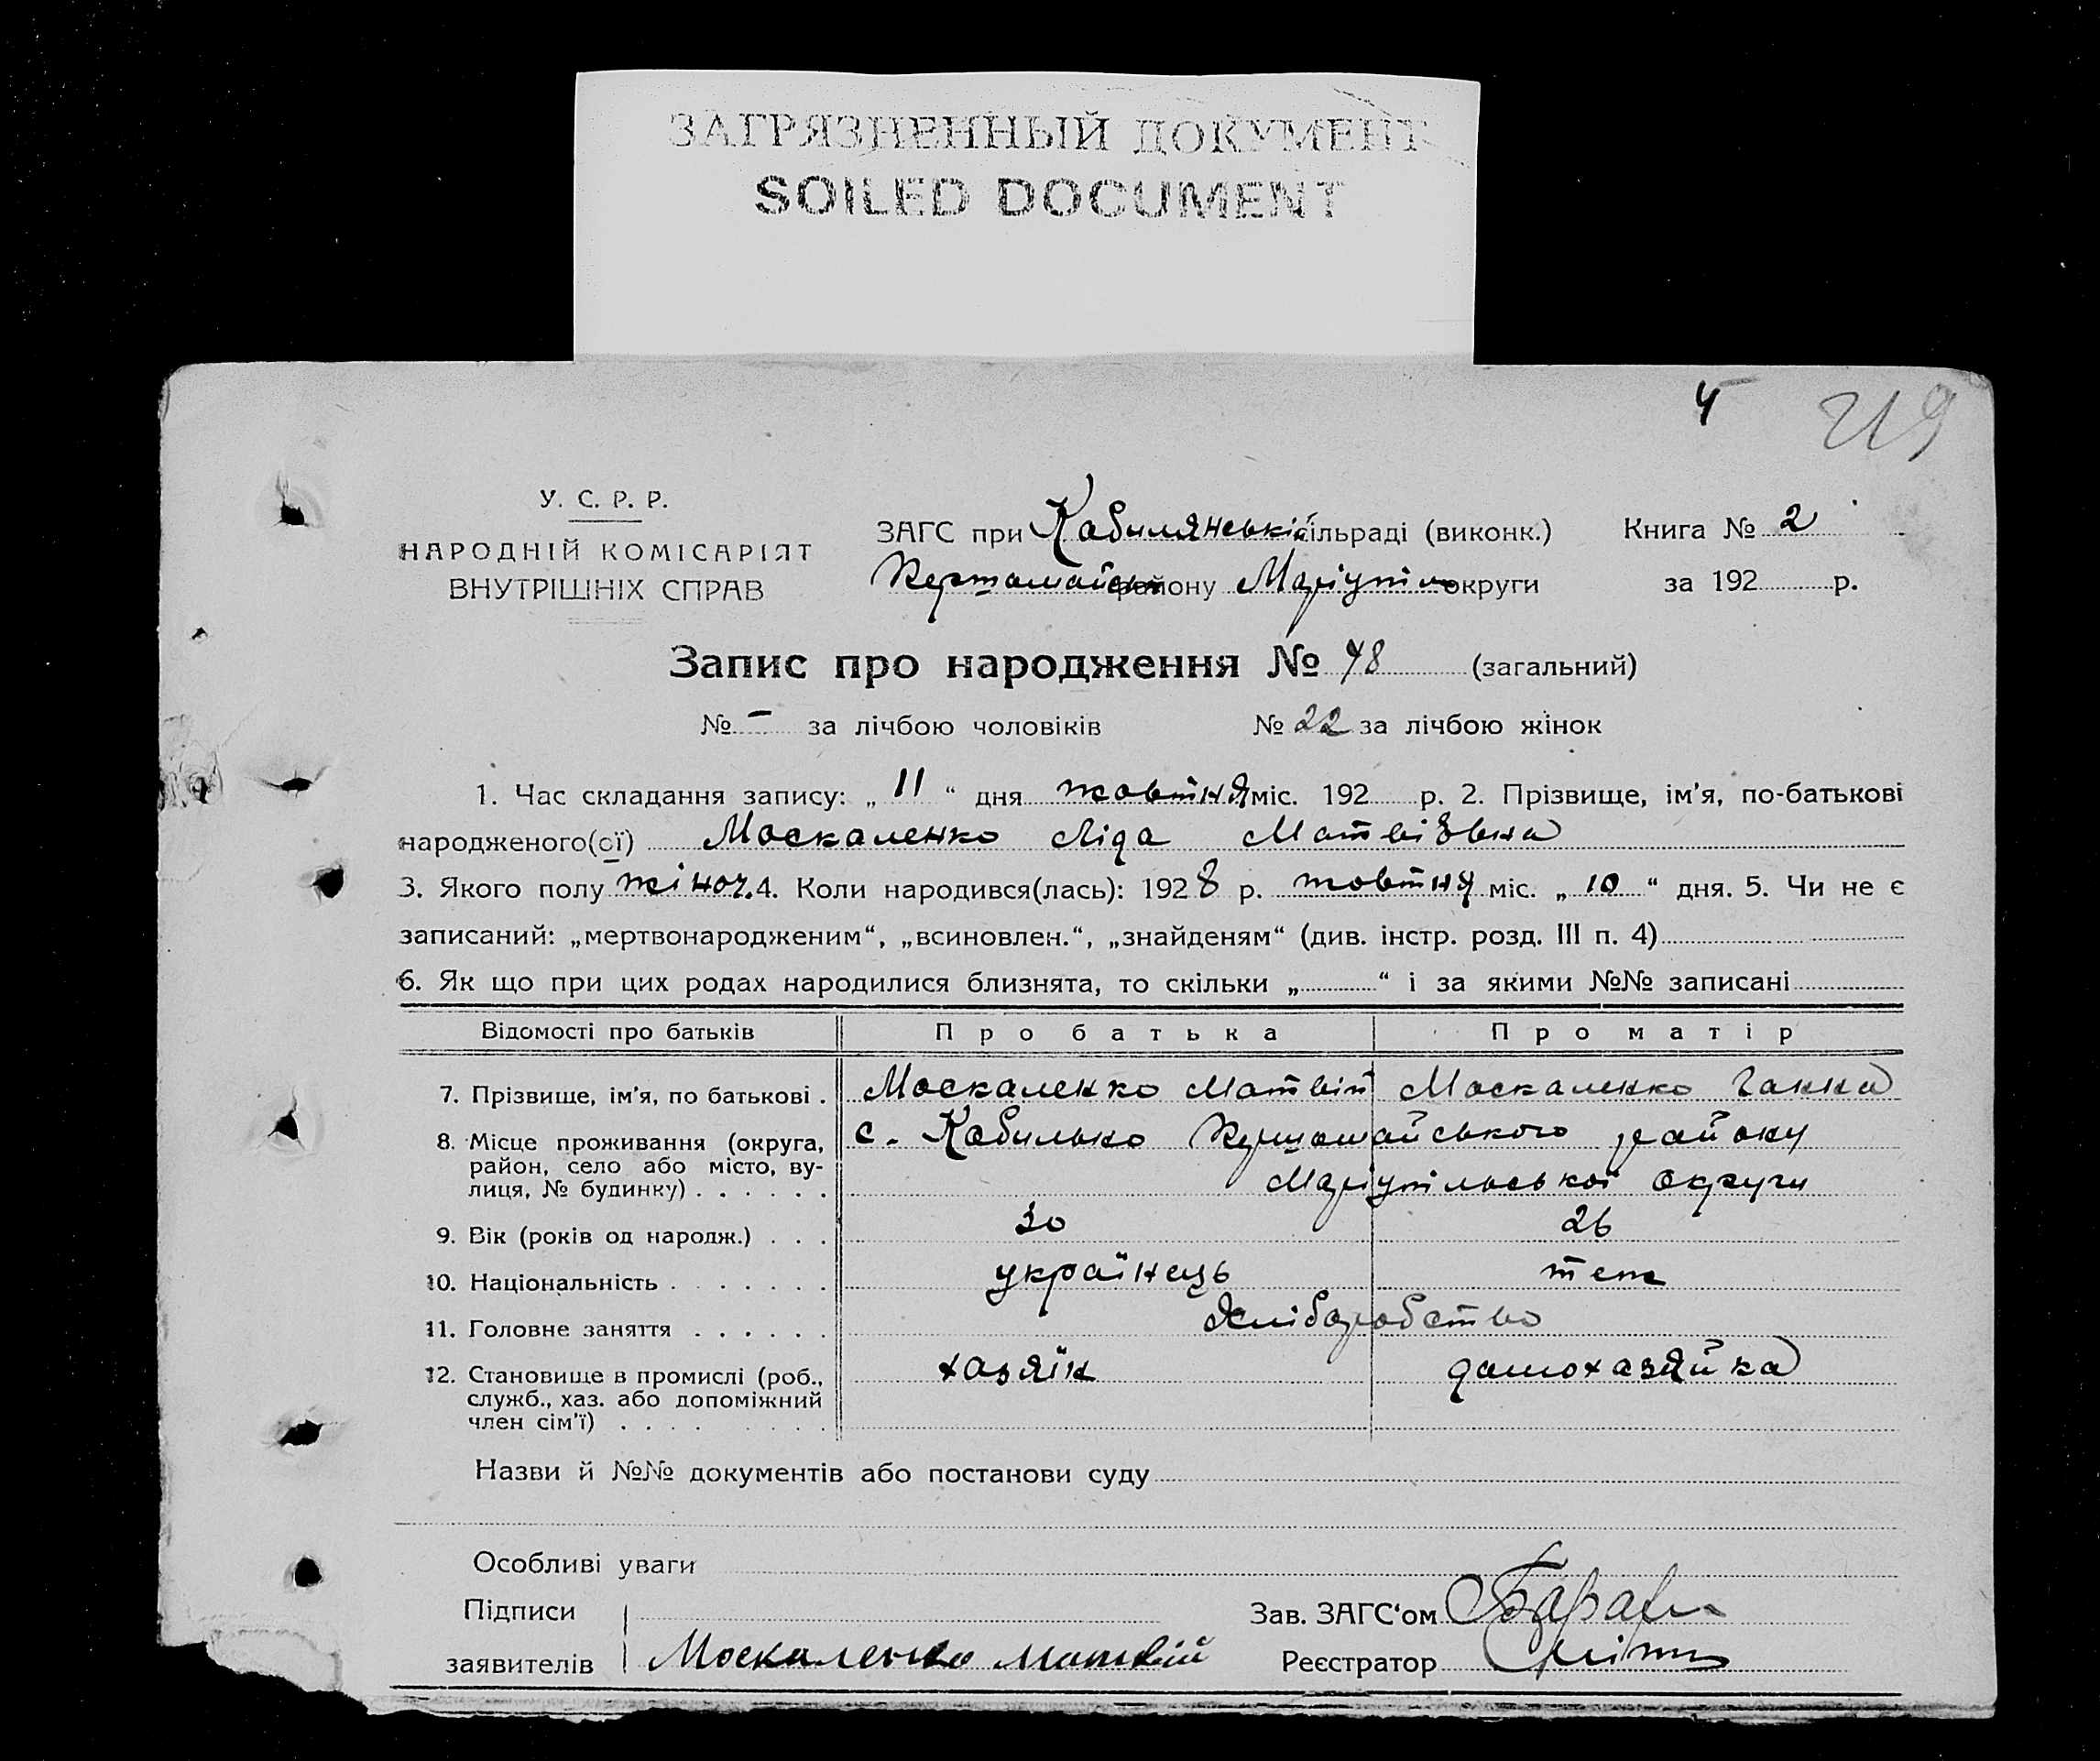 ЗАГРЯЗНЕННЫЙ ДОКУМЕНТ
SOILED DOCUMENT
4 219
У. С. Р. Р.
НАРОДНІЙ КОМІСАРІЯТ
ВНУТРІШНІХ СПРАВ
ЗАГС при Кабилянській сільраді (виконк.) Книга № 2
району Маріупіль округи за 192 р.
Запис про народження № 48 (загальний)
№ – за лічбою чоловіків № 22 за лічбою жінок
1. Час складання запису: „ 11 “ дня жовтня міс. 192 р. 2. Прізвище, ім'я, по-батькові
народженого(ої) Москаленко Ліда Матвіївна
3. Якого полу жіноч. 4. Коли народився(лась): 1928 р. жовтня міс. „ 10 “ дня. 5. Чи не є
записаний: „мертвонародженим“, „всиновлен.“, „знайденям“ (див. інстр. розд. III п. 4)
6. Як що при цих родах народилися близнята, то скільки „ “ і за якими №№ записані
Відомості про батьків Про батька Про матір
7. Прізвище, ім'я, по батькові . Москаленко Матвій Москаленко Ганна
8. Місце проживання (округа, район, село або місто, ву-
лиця, № будинку) . . . . . . с. Кобилько району
Маріупільської округи
9. Вік (років од народж.) . . . 30 26
10. Національність . . . . . . . українець теж
11. Головне заняття . . . . . . Хліборобство
12. Становище в промислі (роб., хазяїн домохазяйка
служб., хаз. або допоміжний
член сім'ї) . . . .
Назви й №№ документів або постанови суду
Особливі уваги
Підписи Зав. ЗАГС'ом
заявителів Москаленко Матвій Реєстратор